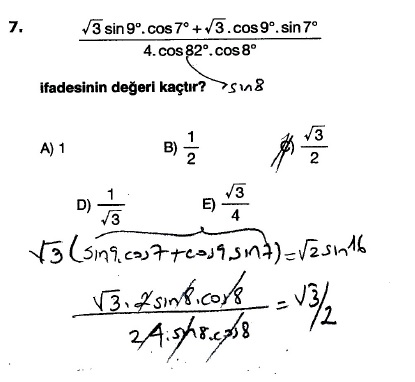 7. √3 sin9°.cos7° + √3.cos9°.sin7°
4.cos82°.cos8°
ifadesinin değeri kaçtır? → sin8
A) 1 B) 1/2 C) √3/2
D) 1/√3 E) √3/4
√3 (sin9.cos7+cos9.sin7)=√2sin16
√3.2sin8.cos8 / 24.sin8.cos8 = √3/2